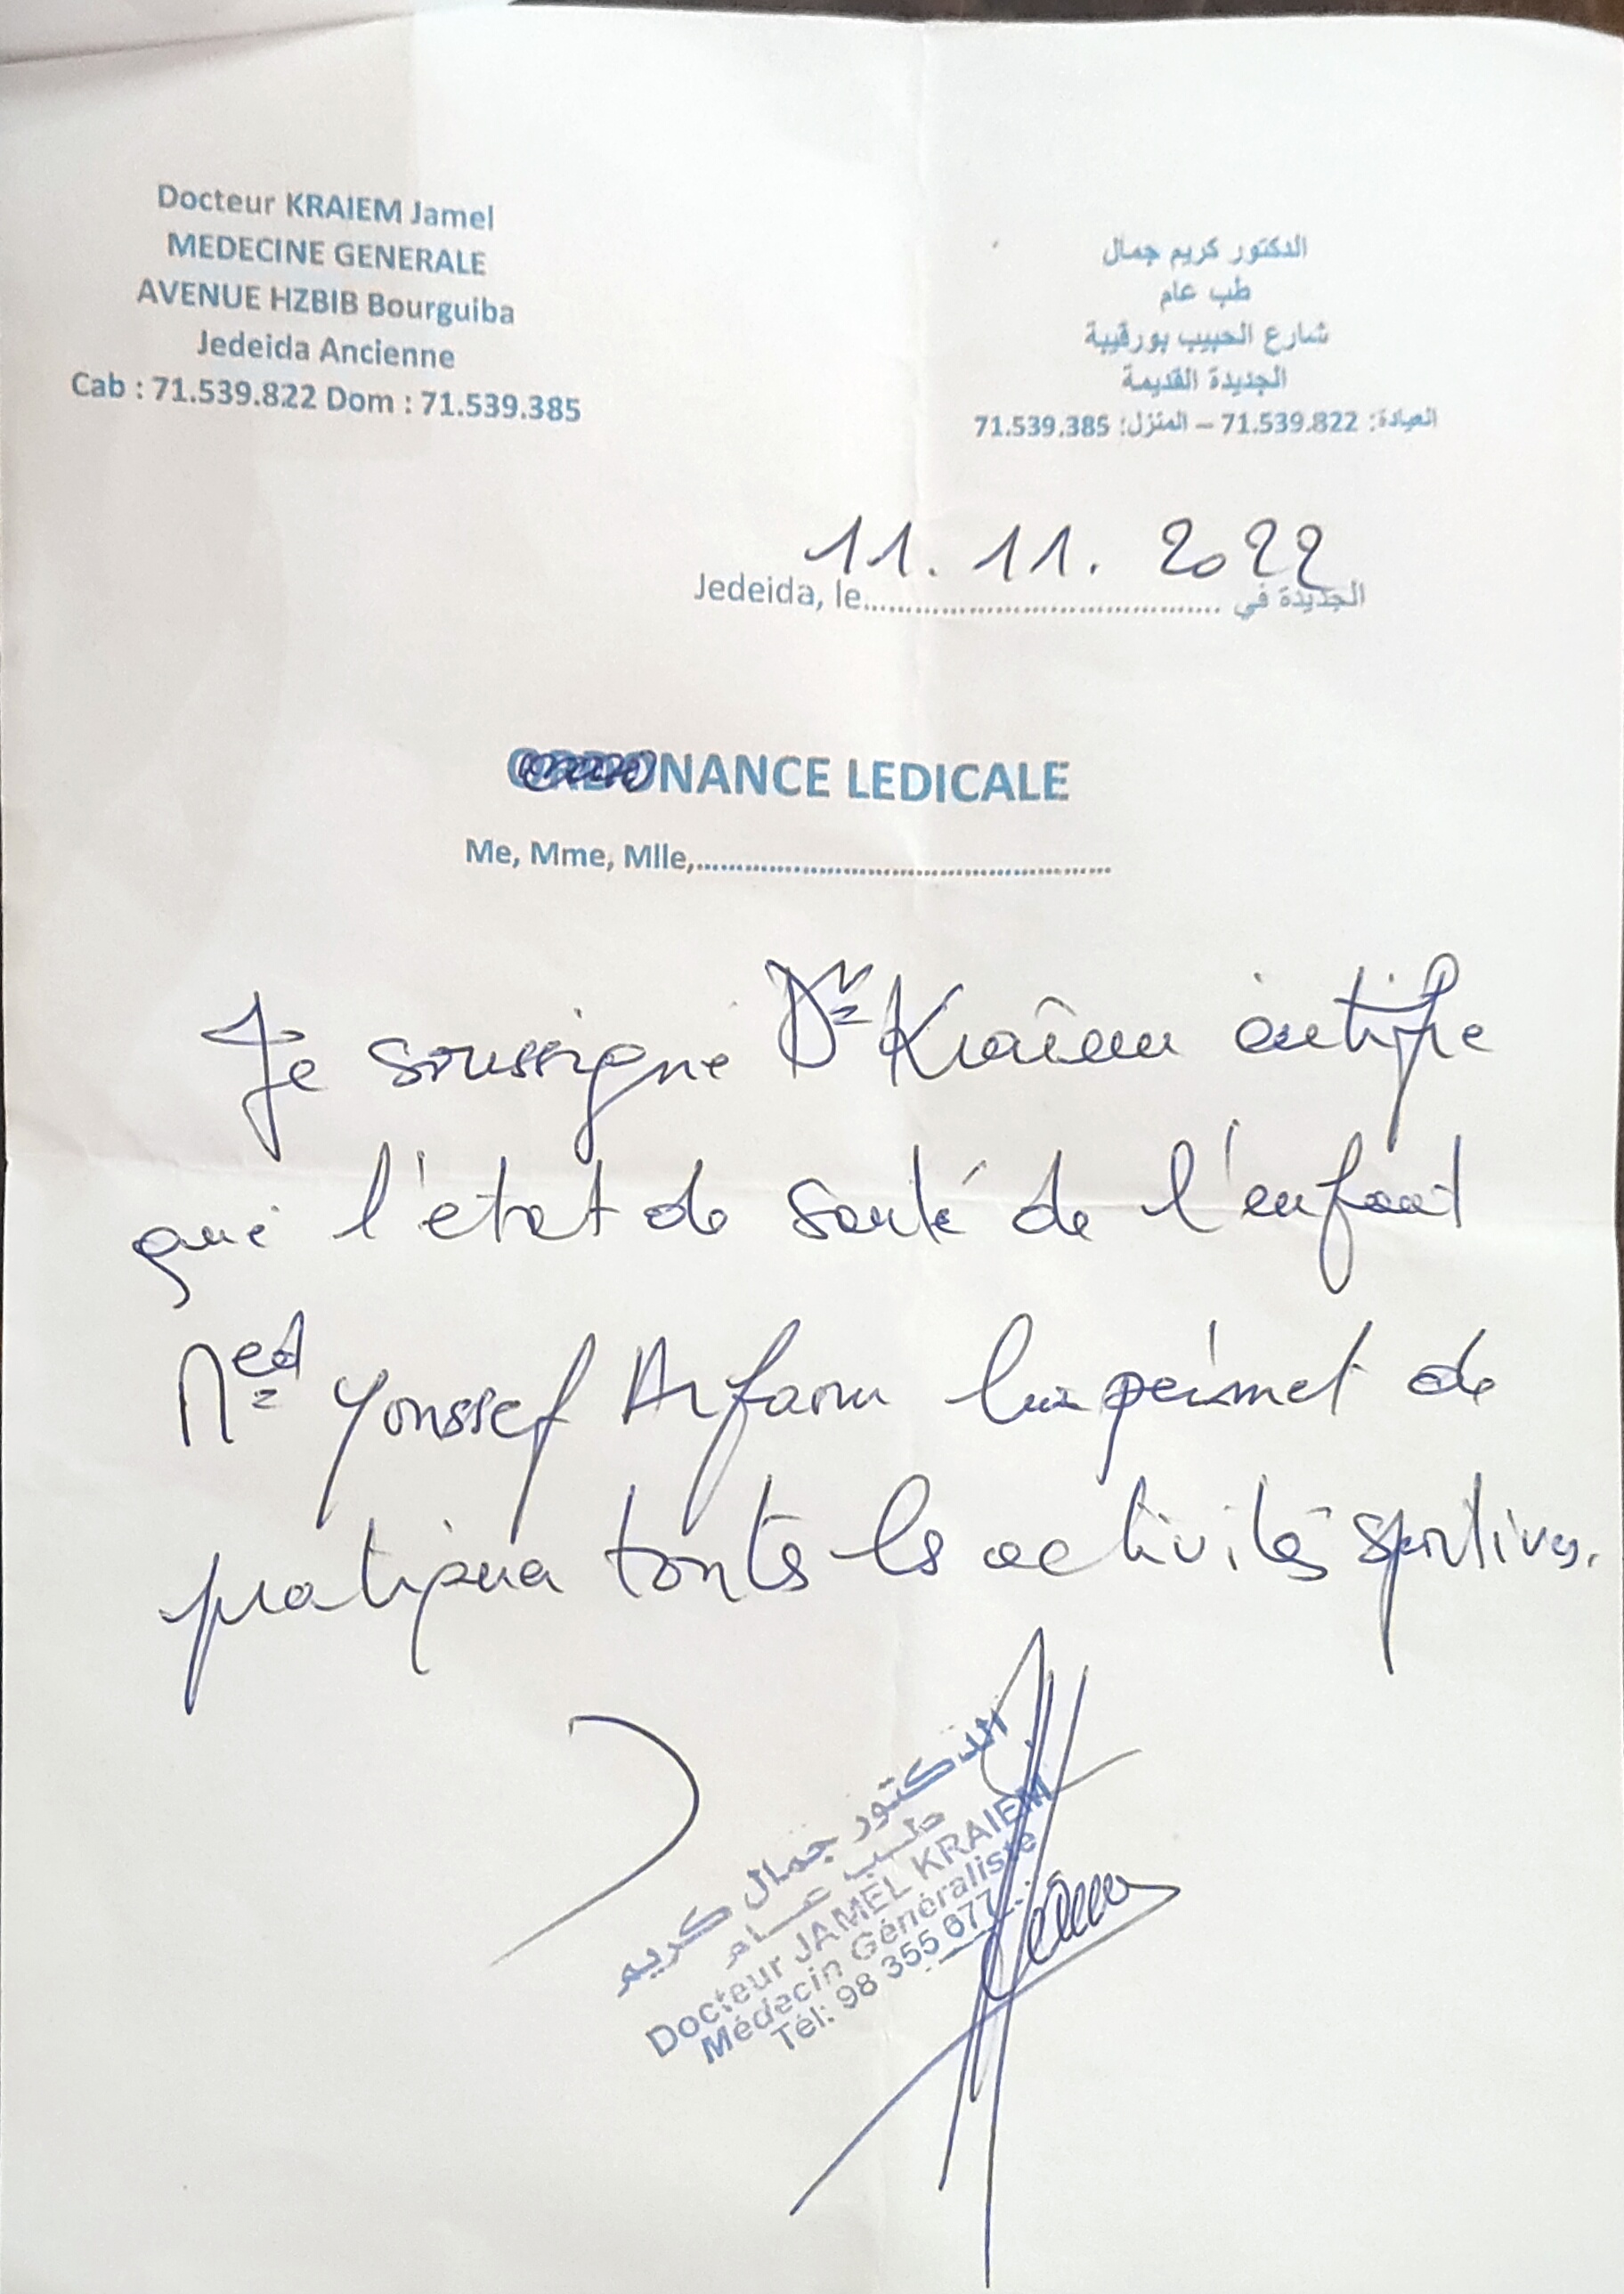 Docteur KRAIEM Jamel
MEDECINE GENERALE
AVENUE HZBIB Bourguiba
Jedeida Ancienne
Cab : 71.539.822 Dom : 71.539.385
الدكتور كريم جمال
طب عام
شارع الحبيب بورقيبة
الجديدة القديمة
العيادة: 71.539.822 – المنزل: 71.539.385
11.11.2022
Jedeida, le........................................ الجديدة في
ORDONANCE LEDICALE
Me, Mme, Mlle,................................................
Je soussigné Dr Kraîem certifie
que l'état de santé de l'enfant
Med Youssef Arfaoui lui permet de
pratiquer toutes les activités sportives.
الدكتور جمال كريم
طب عام
Docteur JAMEL KRAIEM
Médecin Généraliste
Tél: 98 355 677